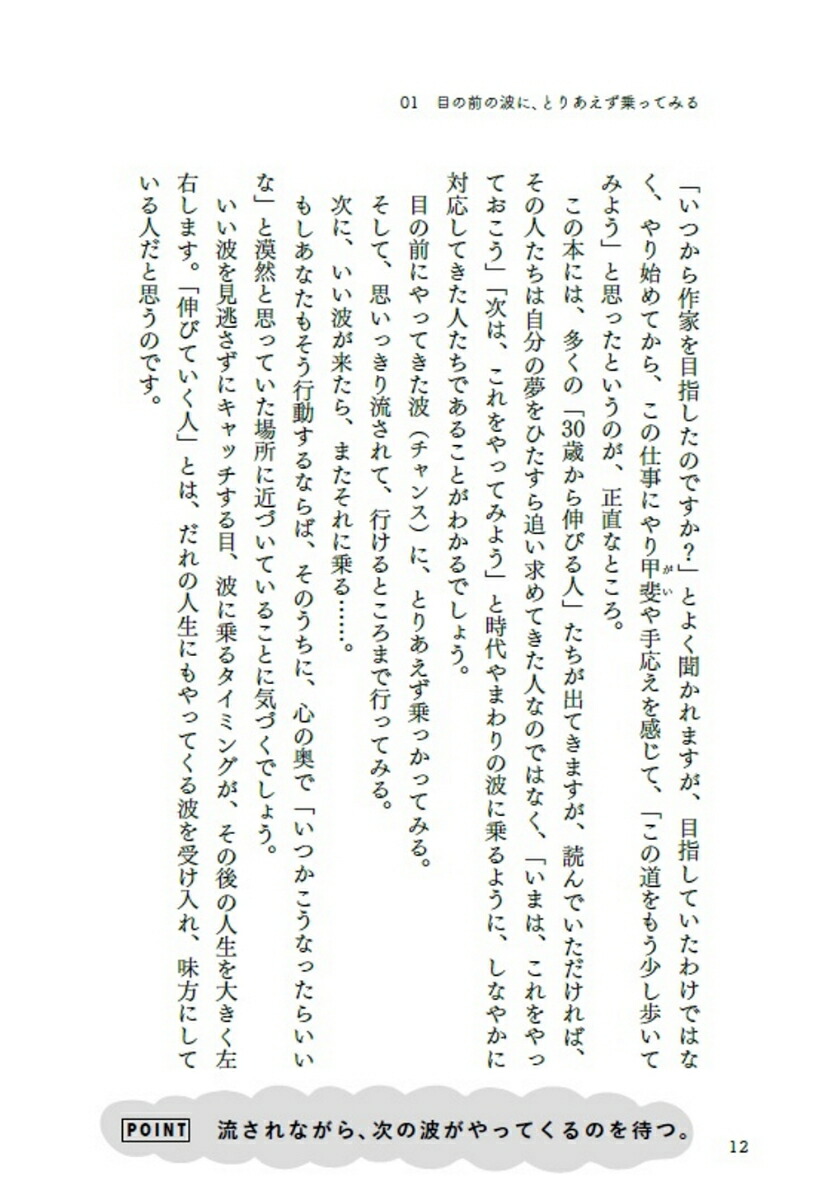 01　目の前の波に、とりあえず乗ってみる
「いつから作家を目指したのですか？」とよく聞かれますが、目指していたわけではな
く、やり始めてから、この仕事にやり甲斐や手応えを感じて、「この道をもう少し歩いて
がい
みよう」と思ったというのが、正直なところ。
この本には、多くの「30歳から伸びる人」たちが出てきますが、読んでいただければ、
その人たちは自分の夢をひたすら追い求めてきた人なのではなく、「いまは、これをやっ
ておこう」「次は、これをやってみよう」と時代やまわりの波に乗るように、しなやかに
対応してきた人たちであることがわかるでしょう。
目の前にやってきた波（チャンス）に、とりあえず乗っかってみる。
そして、思いっきり流されて、行けるところまで行ってみる。
次に、いい波が来たら、またそれに乗る……。
もしあなたもそう行動するならば、そのうちに、心の奥で「いつかこうなったらいい
な」と漠然と思っていた場所に近づいていることに気づくでしょう。
いい波を見逃さずにキャッチする目、波に乗るタイミングが、その後の人生を大きく左
右します。「伸びていく人」とは、だれの人生にもやってくる波を受け入れ、味方にして
いる人だと思うのです。
POINT　流されながら、次の波がやってくるのを待つ。
12